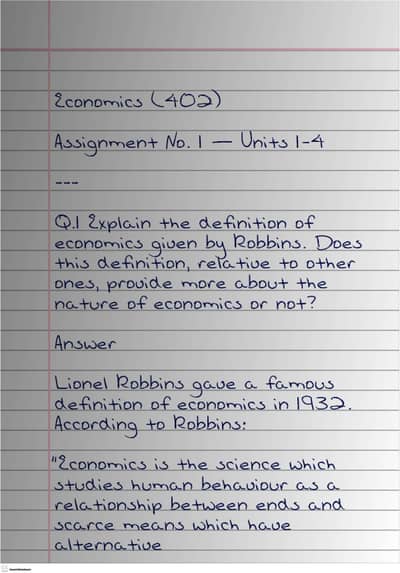 Economics (402)
Assignment No. 1 — Units 1-4
---
Q.1 Explain the definition of
economics given by Robbins. Does
this definition, relative to other
ones, provide more about the
nature of economics or not?
Answer
Lionel Robbins gave a famous
definition of economics in 1932.
According to Robbins:
"Economics is the science which
studies human behaviour as a
relationship between ends and
scarce means which have
alternative